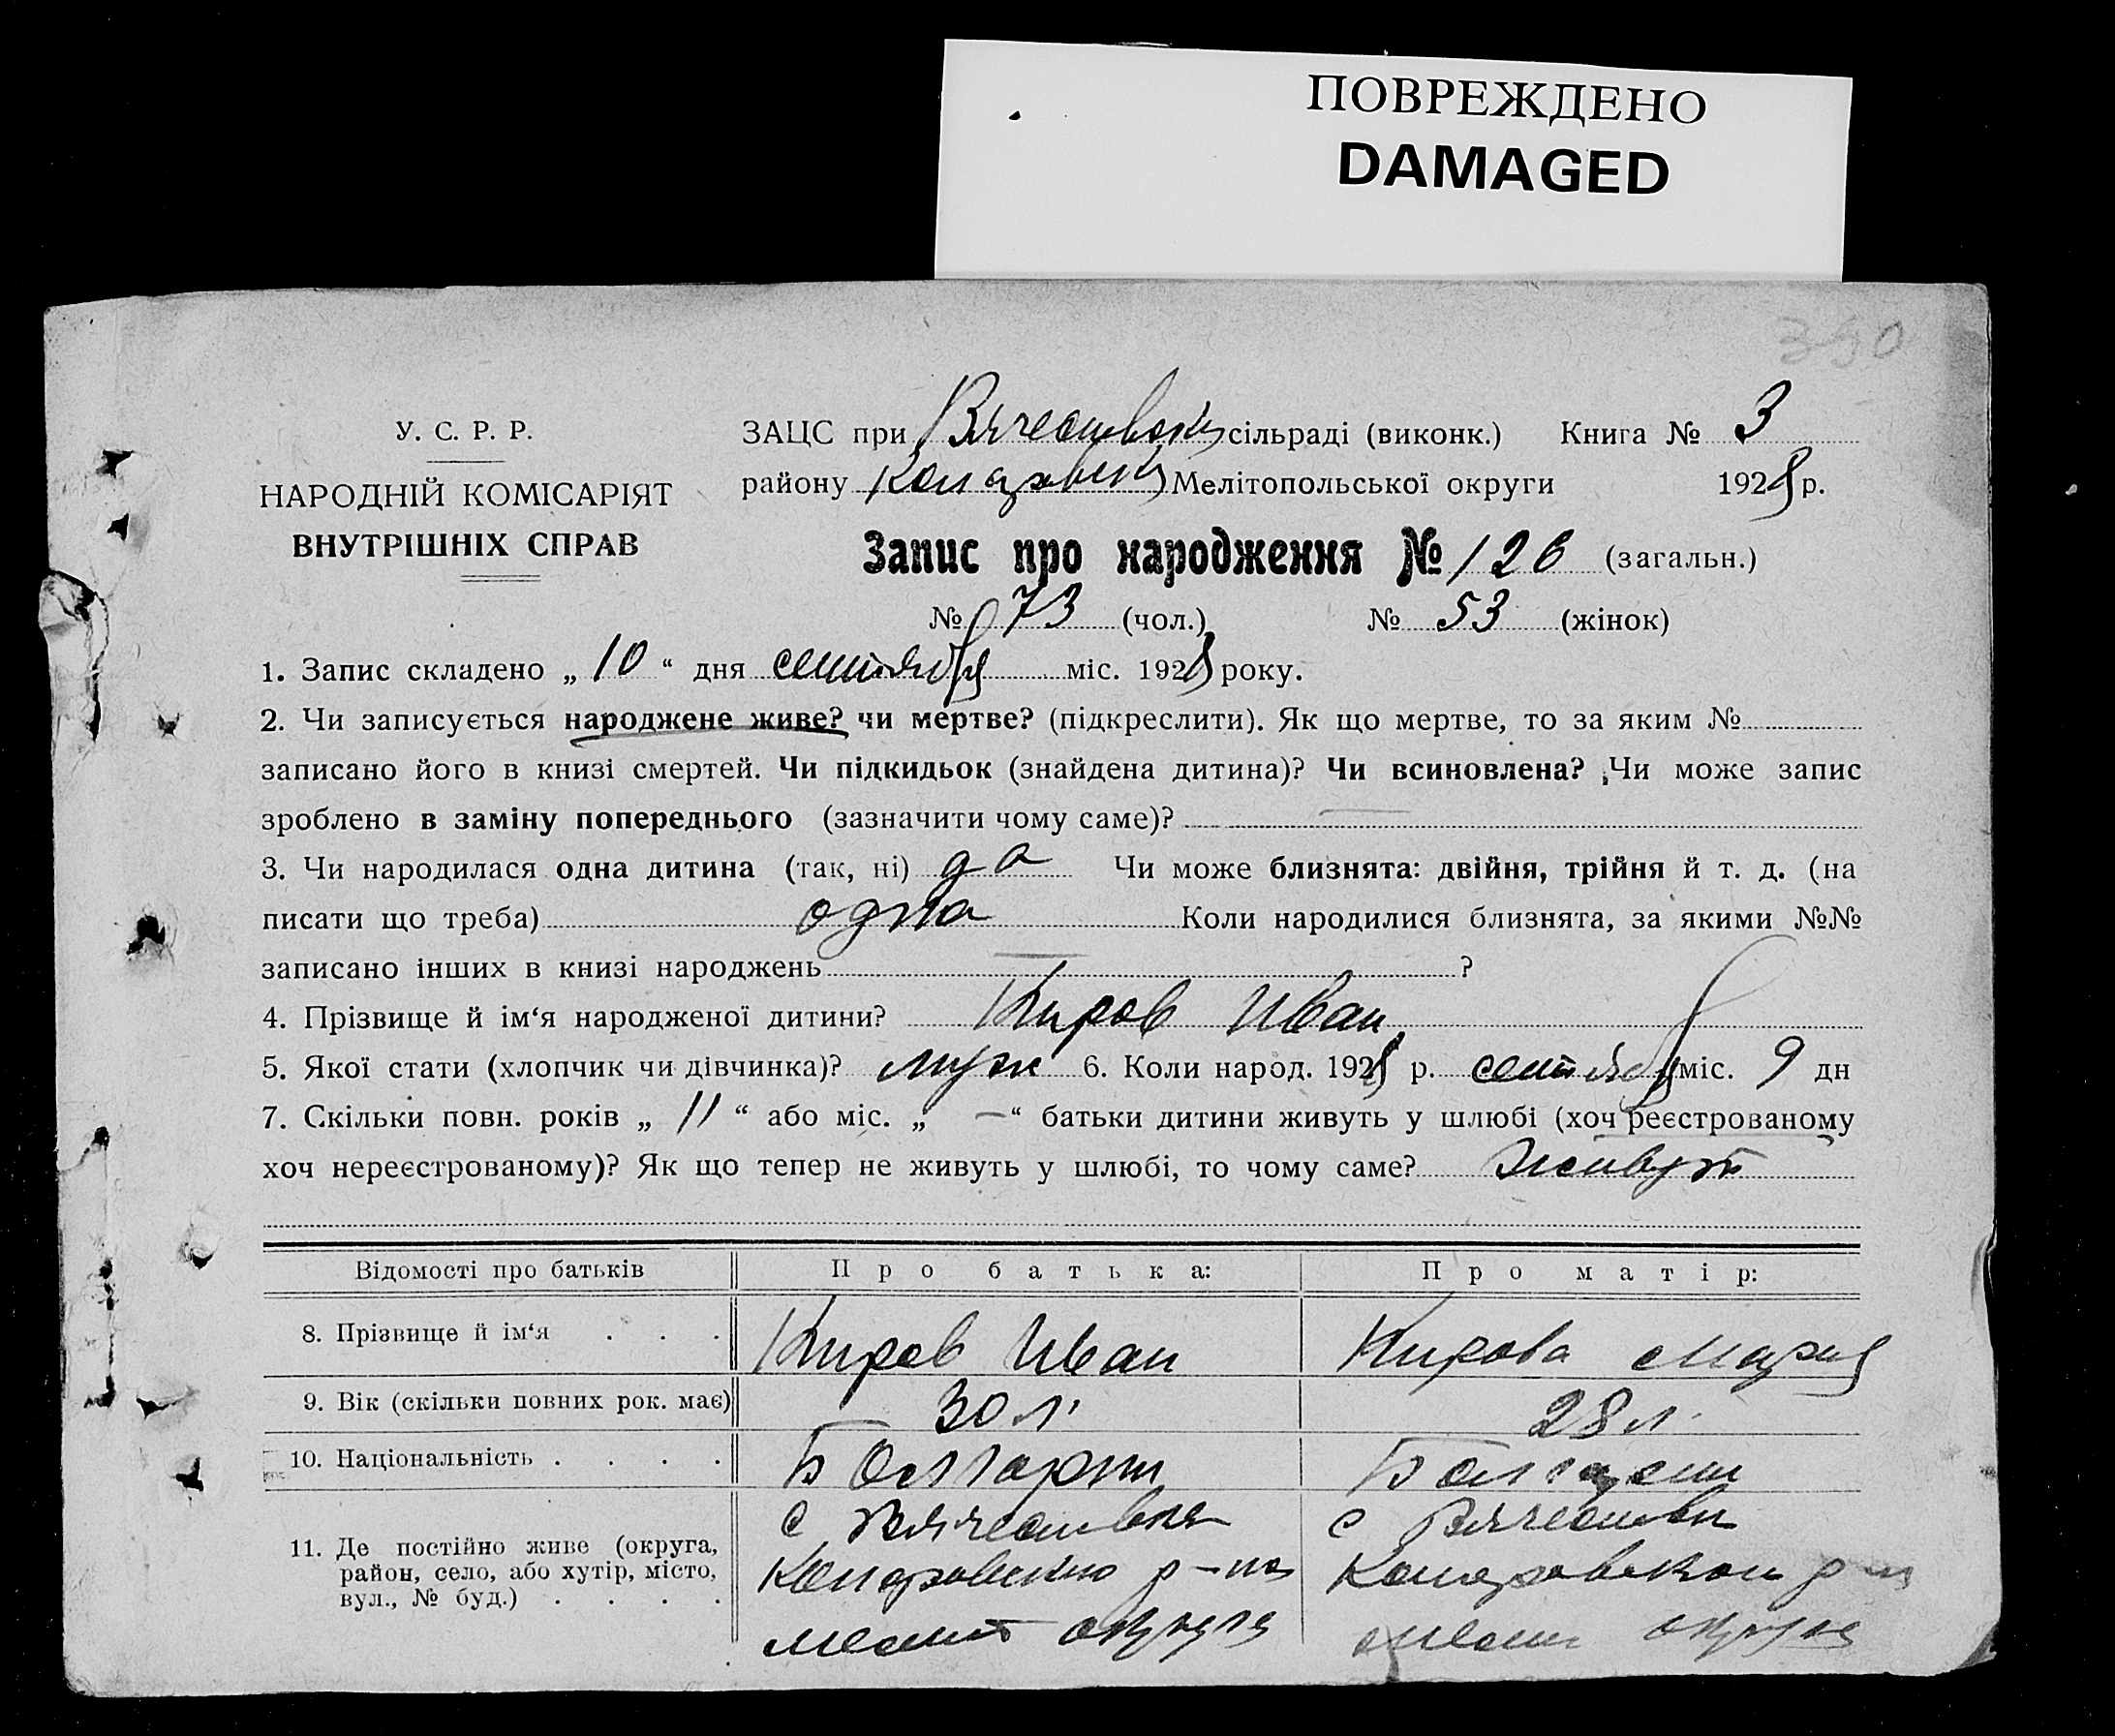 ПОВРЕЖДЕНО
DAMAGED
390
У. С. Р. Р.
НАРОДНІЙ КОМІСАРІЯТ
ВНУТРІШНІХ СПРАВ
ЗАЦС при сільраді (виконк.) Книга № 3
району Мелітопольської округи 1928 р.
Запис про народження № 126 (загальн.)
№ 73 (чол.) № 53 (жінок)
1. Запис складено „ 10 “ дня сентября міс. 1928 року.
2. Чи записується народжене живе? чи мертве? (підкреслити). Як що мертве, то за яким №
записано його в книзі смертей. Чи підкидьок (знайдена дитина)? Чи всиновлена? Чи може запис
зроблено в заміну попереднього (зазначити чому саме)? —
3. Чи народилася одна дитина (так, ні) да Чи може близнята: двійня, трійня й т. д. (на
писати що треба) одна Коли народилися близнята, за якими №№
записано інших в книзі народжень — ?
4. Прізвище й ім‘я народженої дитини? Киров Иван.
5. Якої стати (хлопчик чи дівчинка)? муж 6. Коли народ. 1928 р. сентября міс. 9 дн
7. Скільки повн. років „ 11 “ або міс. „ — “ батьки дитини живуть у шлюбі (хоч реєстрованому
хоч нереєстрованому)? Як що тепер не живуть у шлюбі, то чому саме? живут
Відомості про батьків Про батька: Про матір:
8. Прізвище й ім‘я . . . Киров Иван Кирова Мария
9. Вік (скільки повних рок. має) 30 л. 28 л.
10. Національність . . . . Болгарин
11. Де постійно живе (округа, район, село, або хутір, місто, вул., № буд.) . . . .
с с
р-на
Мелит округа округа